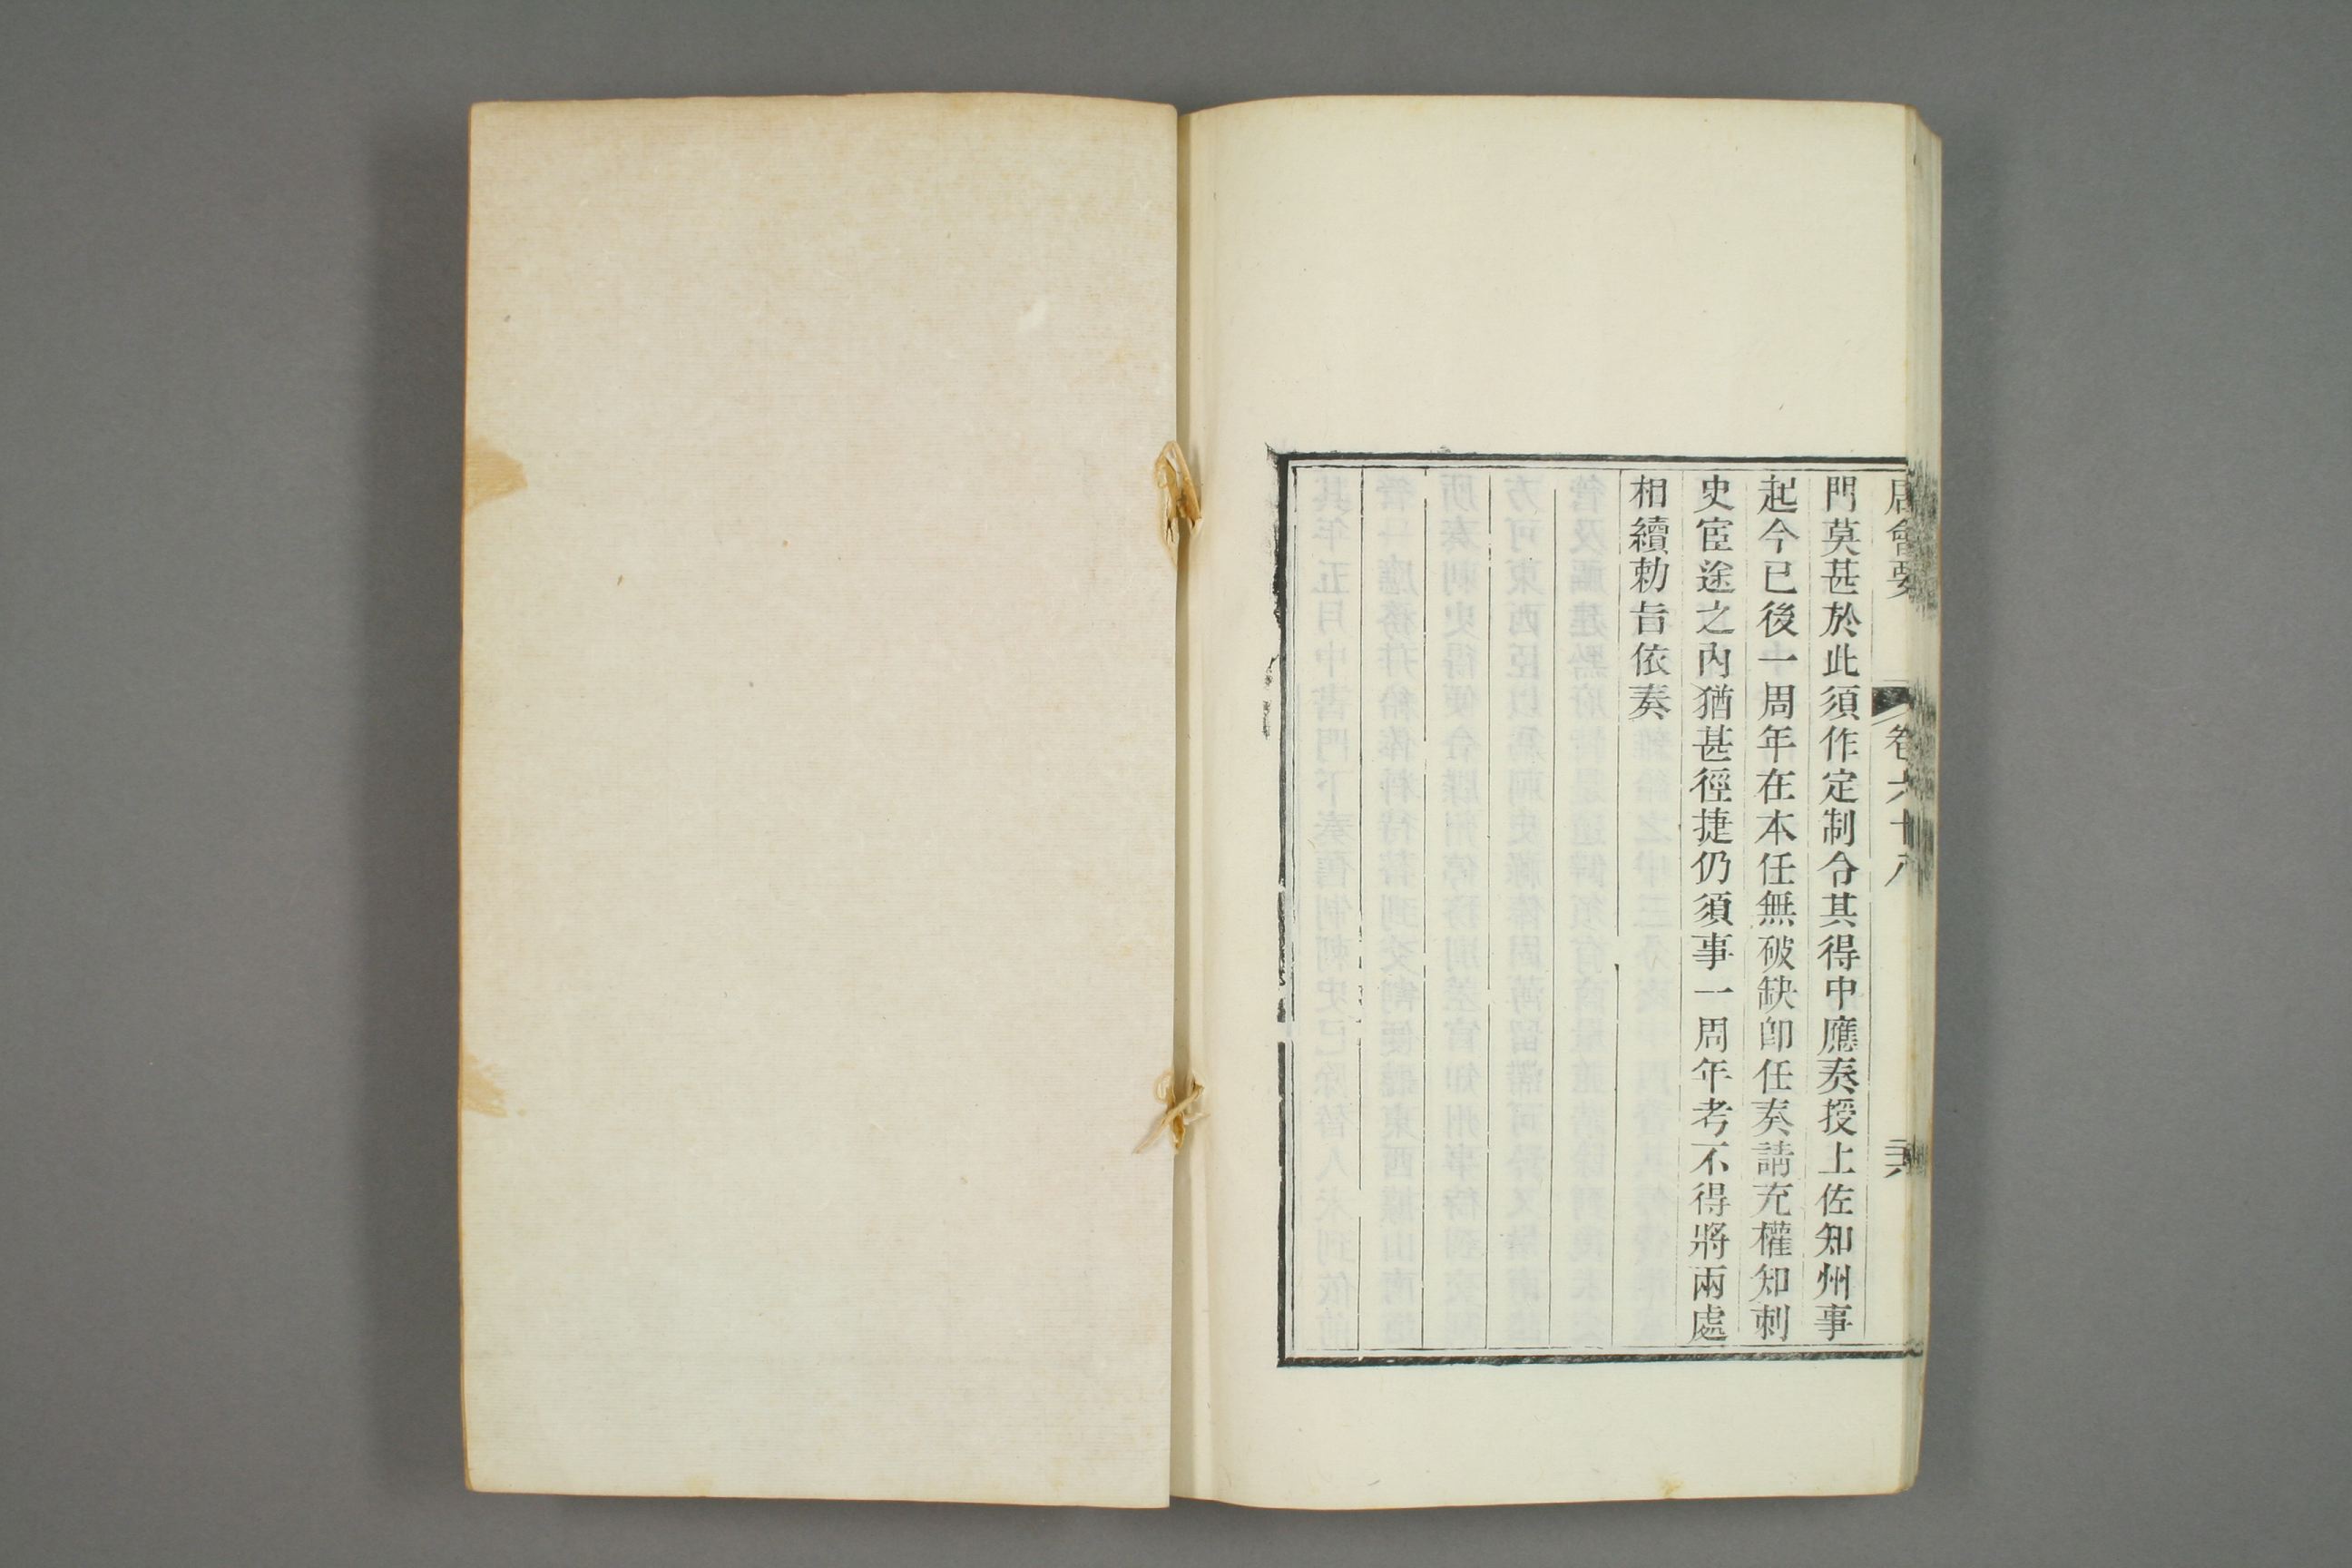 唐會要 卷六十八
門莫甚於此須作定制令其得中應奏授上佐知州事
起今已後一周年在本任無破缺卽任奏請充權知刺
史宦途之內猶甚徑捷仍須事一周年考不得將兩處
相續勅旨依奏